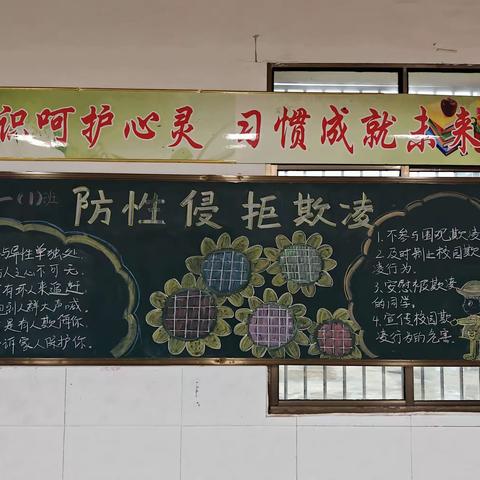 识呵护心灵 习惯成就未来
一(1)班
防性侵拒欺凌
与异性单独处
人之心不可无
有坏人来追赶
别人群大声喊
是有人欺侮你
诉家人保护你。
1.不参与围观欺凌
2.及时制止校园欺
凌行为。
3.安慰被欺凌
的同学。
4.宣传校园欺
凌行为的危害。